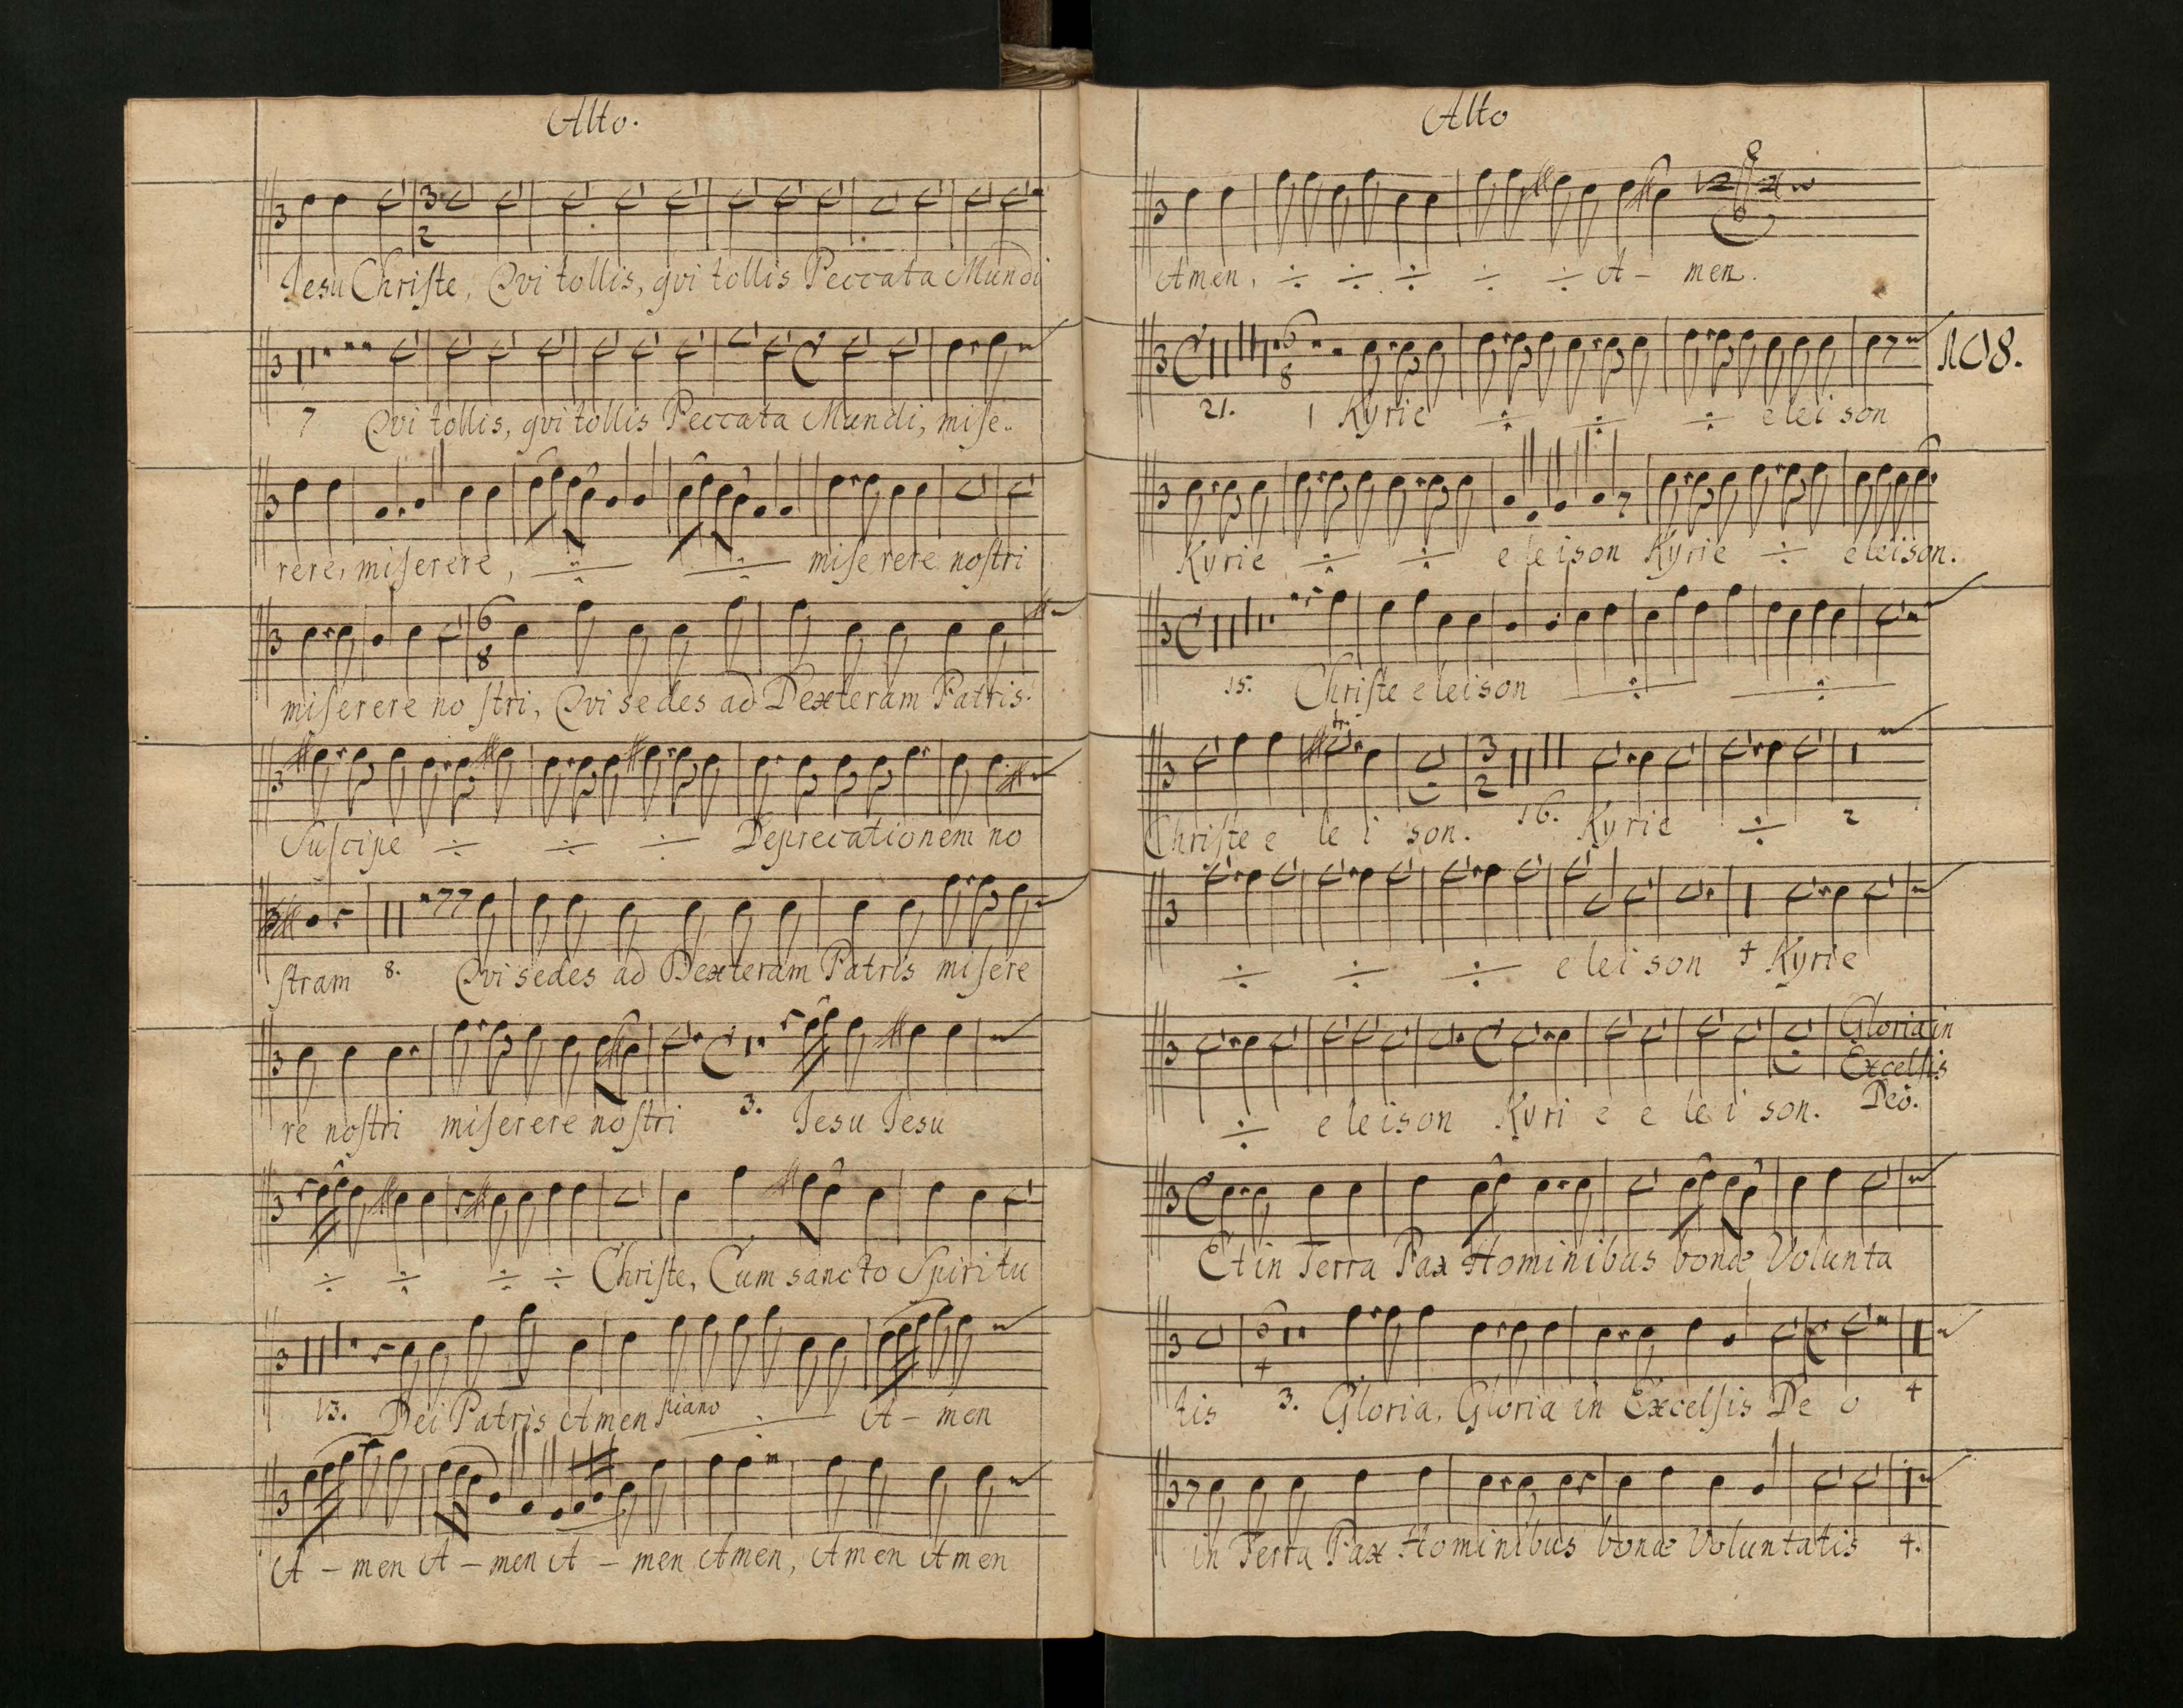 Alto.
Jesu Christe, Qvi tollis, qvi tollis Peccata Mundi
7 Qvi tollis, qvi tollis Peccata Mundi, mise-
rere, miserere, ÷ ÷ miserere nostri
miserere nostri, Qvi sedes ad Dexteram Patris.
Suscipe ÷ ÷ ÷ Deprecationem no
stram 8. Qvi sedes ad Dexteram Patris misere
re nostri miserere nostri 3. Jesu Jesu
÷ ÷ ÷ ÷ Christe, Cum sancto Spiritu
13. Dei Patris Amen piano ÷ A - men
A - men A - men A - men Amen, Amen Amen
Alto
Amen, ÷ ÷ ÷ ÷ ÷ A - men.
108.
21. 1 Kyrie ÷ ÷ ÷ elei son
Kyrie ÷ ÷ eleison Kyrie ÷ eleison.
15. Christe eleison ÷ ÷
tr.
Christe e le i son. 16. Kyrie ÷ 2
÷ ÷ ÷ e lei son 4 Kyrie
Gloria in
Excelsis
Deo.
÷ eleison Kyri e e le i son.
Et in Terra Pax Hominibus bonæ Volunta
tis 3. Gloria, Gloria in Excelsis De o 4
in Terra Pax Hominibus bonæ Voluntatis 4.